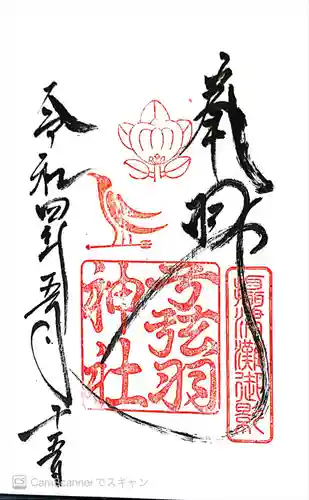 奉拝
弓弦羽
神社
令和四年五月十五日
CamScannerでスキャン